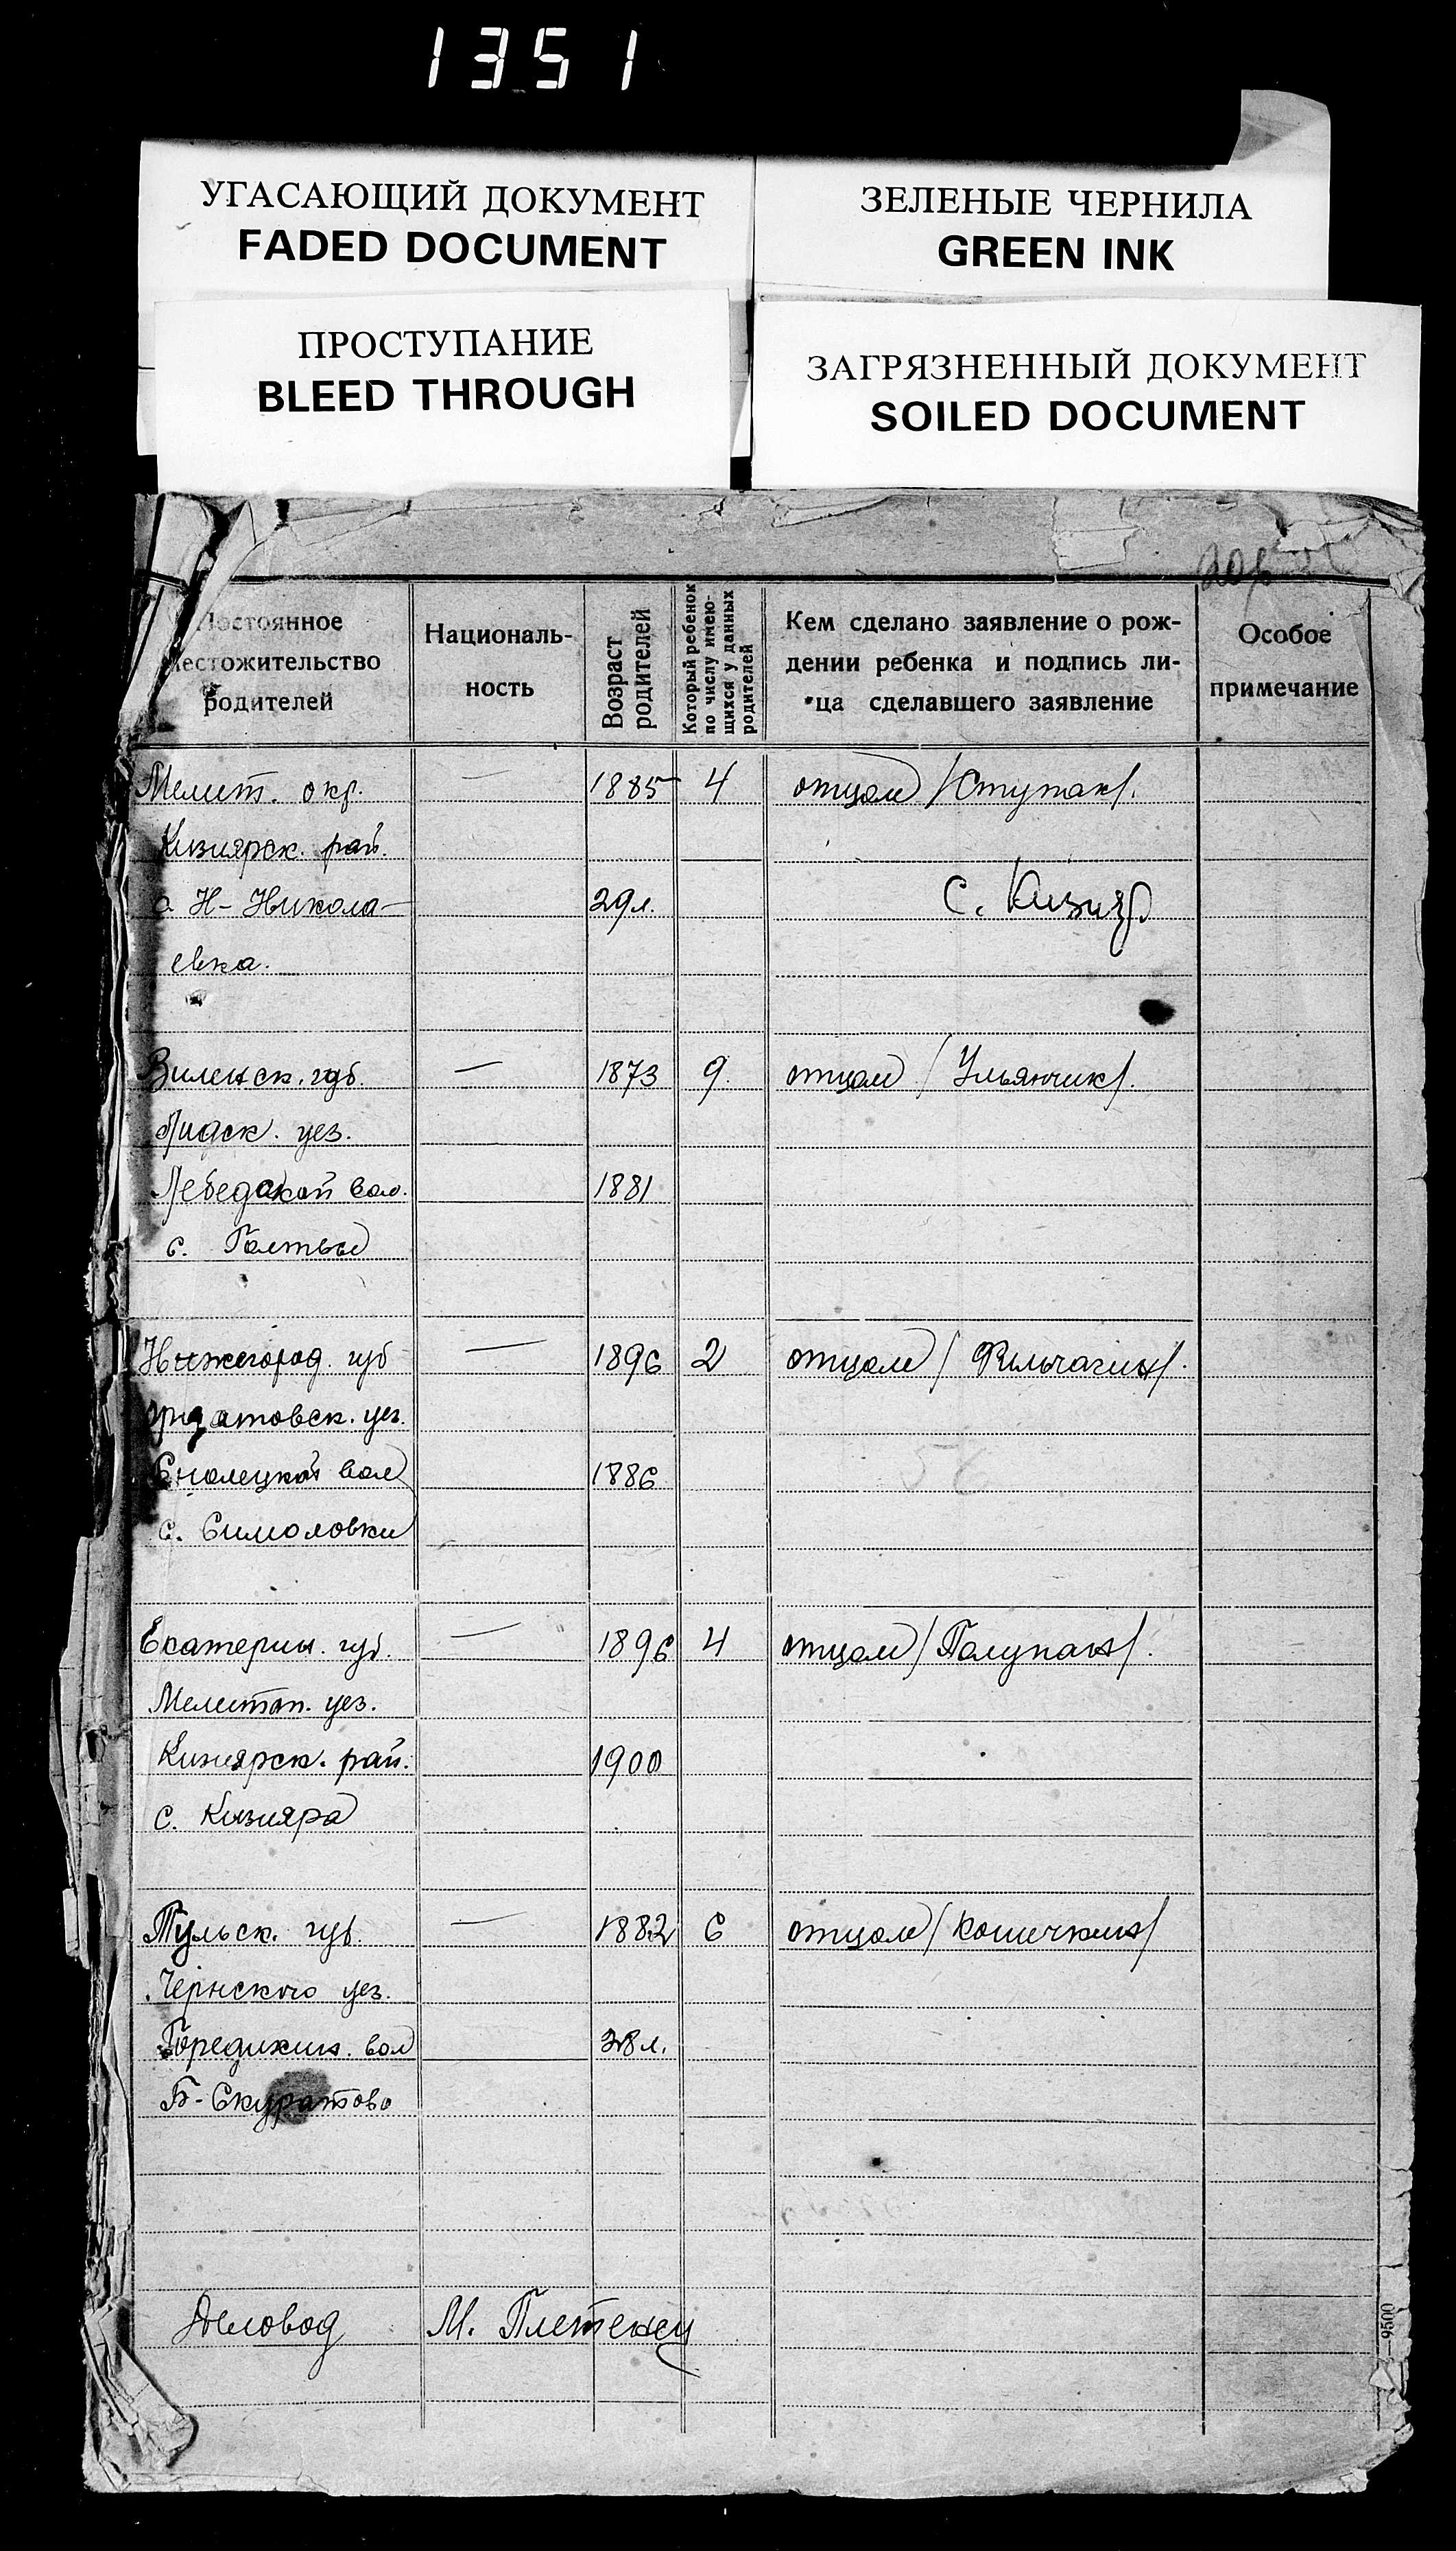 1351
УГАСАЮЩИЙ ДОКУМЕНТ
FADED DOCUMENT
ЗЕЛЕНЫЕ ЧЕРНИЛА
GREEN INK
ПРОСТУПАНИЕ
BLEED THROUGH
ЗАГРЯЗНЕННЫЙ ДОКУМЕНТ
SOILED DOCUMENT
Постоянное
местожительство
родителей
Националь-
ность
Возраст
родителей
Который ребенок
по числу имею-
щихся у данных
родителей
Кем сделано заявление о рож-
дении ребенка и подпись ли-
ца сделавшего заявление
Особое
примечание
Мелит. окр. — 1885 4 отцом /Ступак/.
Кизиярск. рай.
Н-Никола- 29 л. с. Кизияр
евка.
Виленск. губ. — 1873 9. отцом /Ульянчик/.
Лидск. уез.
Лебедской вол. 1881
с.
Нижегород. губ — 1896 2 отцом /
уез.
вол 1886
с.
Екатерин. губ. — 1896 4 отцом /Полупан/.
Мелитоп. уез.
Кизиярск. рай. 1900
с. Кизияра
Тульск. губ. — 1882 6 отцом /Кошечкин/
Чернского уез.
вол 38 л.
Б-Скуратово
Деловод М. Плетенец
—9500